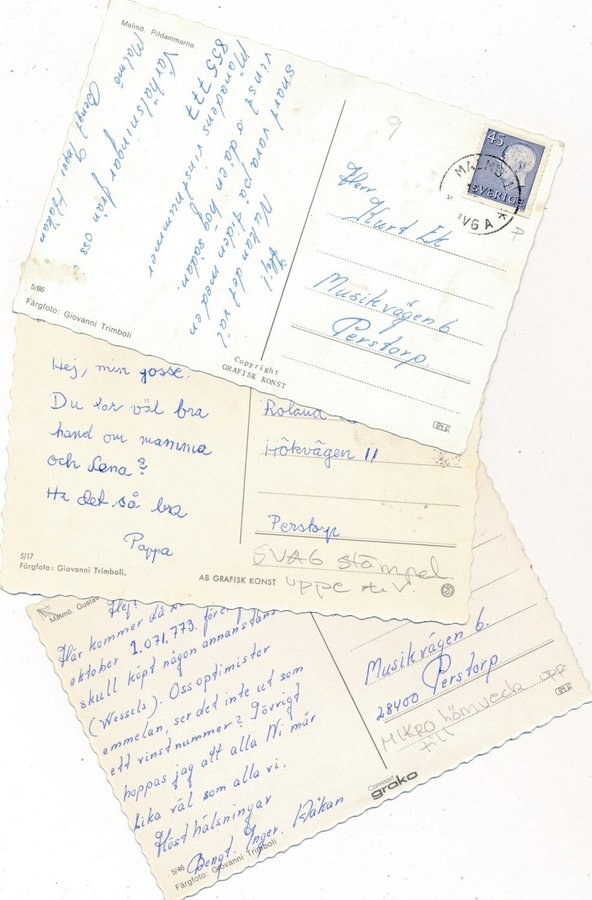 Malmö. Pildammarna.
Hej!
Nu kan det väl
snart vara på tiden med en
vinst o då en hög sådan.
Månadens vinstnummer
855777
Vårhälsningar från oss i
Malmö
Bengt Inger Håkan
5/66
Färgfoto: Giovanni Trimboli
Copyright
GRAFISK KONST
9
45
SVERIGE
MALMÖ
AVGA
Herr
Kurd Ek
Musikvägen 6
Perstorp.
Hej, min gosse.
Du tar väl bra
hand om mamma
och Lena?
Ha det så bra
Pappa
5/17
Färgfoto: Giovanni Trimboli.
AB GRAFISK KONST
Roland
Hökvägen 11
Perstorp
SVAG stämpel
uppe t.v.
Malmö. Gustav
Hej!
Här kommer då
oktober 1.071.773.
skull köpt någon annanstans
(Wessels). Oss optimister
emmelan, ser det inte ut som
ett vinstnummer? I övrigt
hoppas jag att alla Ni mår
lika väl som alla vi.
Höst hälsningar
Bengt. Inger. Håkan
5/46
Färgfoto: Giovanni Trimboli
Copyright
grako
Musikvägen 6.
28400 Perstorp
MIKRO hörnveck upp
till